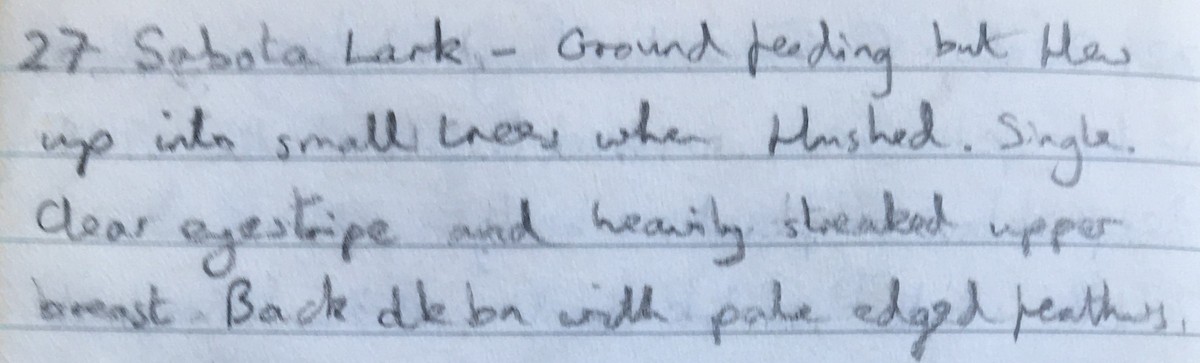 27 Sabota Lark - Ground feeding but flew
up into small trees when flushed. Single.
Clear eyestripe and heavily streaked upper
breast. Back dk bn with pale edged feathers.